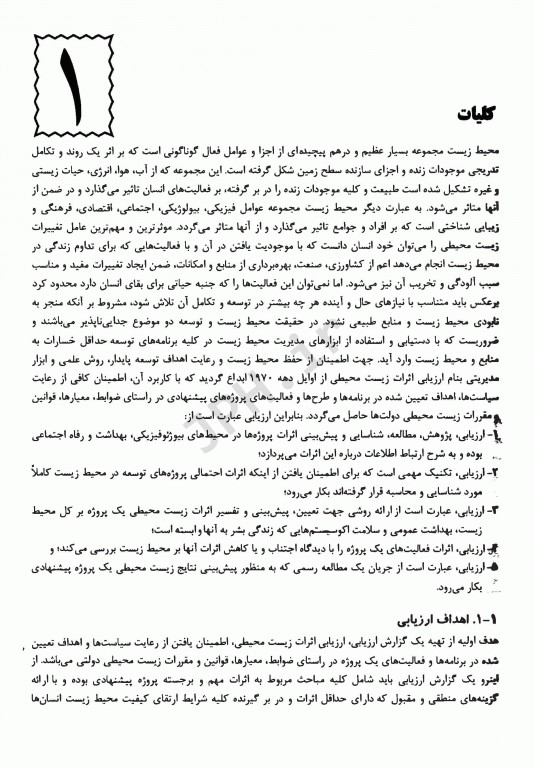 ۱
کلیات
محیط زیست مجموعه بسیار عظیم و درهم پیچیده‌ای از اجزا و عوامل فعال گوناگونی است که بر اثر یک روند و تکامل
تدریجی موجودات زنده و اجزای سازنده سطح زمین شکل گرفته است. این مجموعه که از آب، هوا، انرژی، حیات زیستی
و غیره تشکیل شده است طبیعت و کلیه موجودات زنده را در بر گرفته، بر فعالیت‌های انسان تاثیر می‌گذارد و در ضمن از
آنها متاثر می‌شود. به عبارت دیگر محیط زیست مجموعه عوامل فیزیکی، بیولوژیکی، اجتماعی، اقتصادی، فرهنگی و
زیبایی شناختی است که بر افراد و جوامع تاثیر می‌گذارد و از آنها متاثر می‌گردد. موثرترین و مهم‌ترین عامل تغییرات
زیست محیطی را می‌توان خود انسان دانست که با موجودیت یافتن در آن و با فعالیت‌هایی که برای تداوم زندگی در
محیط زیست انجام می‌دهد اعم از کشاورزی، صنعت، بهره‌برداری از منابع و امکانات، ضمن ایجاد تغییرات مفید و مناسب
سبب آلودگی و تخریب آن نیز می‌شود. اما نمی‌توان این فعالیت‌ها را که جنبه حیاتی برای بقای انسان دارد محدود کرد
برعکس باید متناسب با نیازهای حال و آینده هر چه بیشتر در توسعه و تکامل آن تلاش شود، مشروط بر آنکه منجر به
نابودی محیط زیست و منابع طبیعی نشود. در حقیقت محیط زیست و توسعه دو موضوع جدایی‌ناپذیر می‌باشند و
ضروریست که با دستیابی و استفاده از ابزارهای مدیریت محیط زیست در کلیه برنامه‌های توسعه حداقل خسارات به
منابع و محیط زیست وارد آید. جهت اطمینان از حفظ محیط زیست و رعایت اهداف توسعه پایدار، روش علمی و ابزار
مدیریتی بنام ارزیابی اثرات زیست محیطی از اوایل دهه ۱۹۷۰ ابداع گردید که با کاربرد آن، اطمینان کافی از رعایت
سیاست‌ها، اهداف تعیین شده در برنامه‌ها و طرح‌ها و فعالیت‌های پروژه‌های پیشنهادی در راستای ضوابط، معیارها، قوانین
و مقررات زیست محیطی دولت‌ها حاصل می‌گردد. بنابراین ارزیابی عبارت است از:
۱- ارزیابی، پژوهش، مطالعه، شناسایی و پیش‌بینی اثرات پروژه‌ها در محیط‌های بیوژئوفیزیکی، بهداشت و رفاه اجتماعی
بوده و به شرح ارتباط اطلاعات درباره این اثرات می‌پردازد؛
۲- ارزیابی، تکنیک مهمی است که برای اطمینان یافتن از اینکه اثرات احتمالی پروژه‌های توسعه در محیط زیست کاملاً
مورد شناسایی و محاسبه قرار گرفته‌اند بکار می‌رود؛
۳- ارزیابی، عبارت است از ارائه روشی جهت تعیین، پیش‌بینی و تفسیر اثرات زیست محیطی یک پروژه بر کل محیط
زیست، بهداشت عمومی و سلامت اکوسیستم‌هایی که زندگی بشر به آنها وابسته است؛
۴- ارزیابی، اثرات فعالیت‌های یک پروژه را با دیدگاه اجتناب و یا کاهش اثرات آنها بر محیط زیست بررسی می‌کند؛ و
۵- ارزیابی، عبارت است از جریان یک مطالعه رسمی که به منظور پیش‌بینی نتایج زیست محیطی یک پروژه پیشنهادی
بکار می‌رود.
۱-۱. اهداف ارزیابی
هدف اولیه از تهیه یک گزارش ارزیابی، ارزیابی اثرات زیست محیطی، اطمینان یافتن از رعایت سیاست‌ها و اهداف تعیین
شده در برنامه‌ها و فعالیت‌های یک پروژه در راستای ضوابط، معیارها، قوانین و مقررات زیست محیطی دولتی می‌باشد. از
اینرو یک گزارش ارزیابی باید شامل کلیه مباحث مربوط به اثرات مهم و برجسته پروژه پیشنهادی بوده و با ارائه
گزینه‌های منطقی و مقبول که دارای حداقل اثرات و در بر گیرنده کلیه شرایط ارتقای کیفیت محیط زیست انسان‌ها